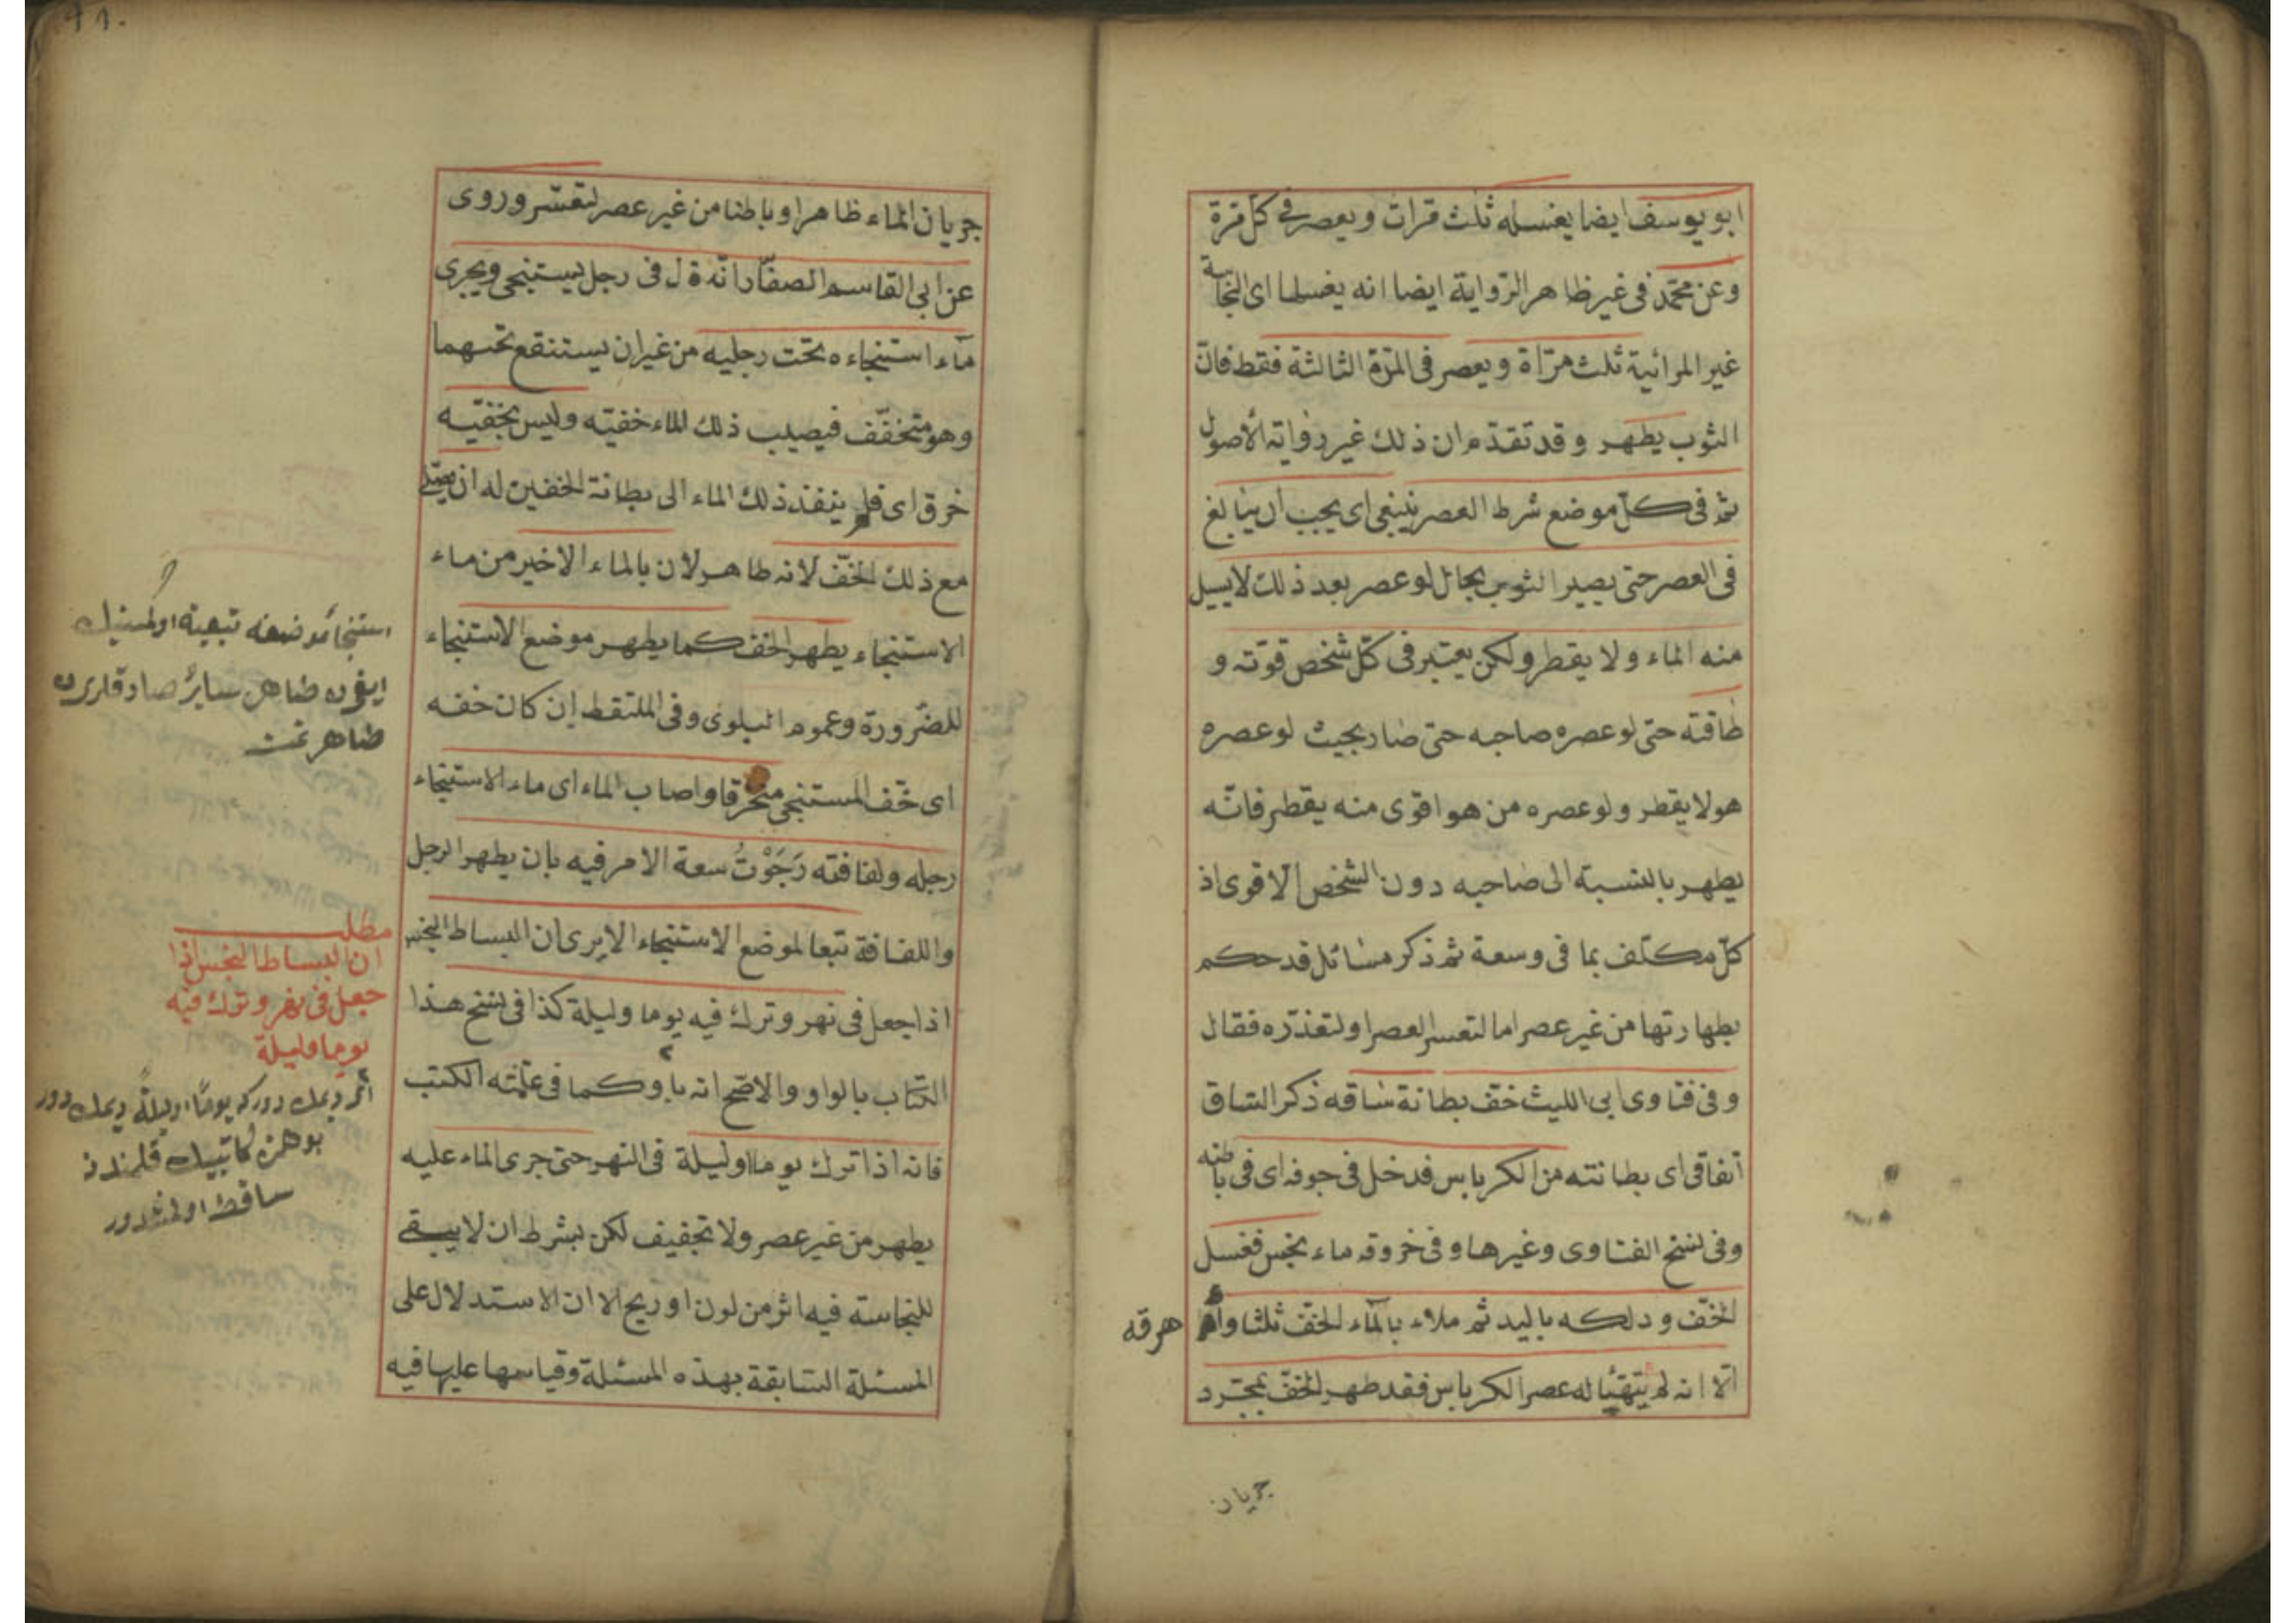 ابو يوسف ايضا يغسله ثلث مرات ويعصر فى كل مرة
وعن محمد فى غير ظاهر الرواية ايضا انه يغسلها اى النجاسة
غير المرائية ثلث مرّاة ويعصر فى المرّة الثالثة فقط فانّ
الثوب يطهر وقد تقدّم ان ذلك غير رواية الاصول
ثم فى كلّ موضع شرط العصر ينبغى اى يجب ان يبالغ
فى العصر حتى يصير الثوب بحال لو عصر بعد ذلك لا يسيل
منه الماء ولا يقطر ولكن يعتبر فى كلّ شخص قوّته و
طاقته حتى لو عصره صاحبه حتى صار بحيث لو عصره
هو لا يقطر ولو عصره من هو اقوى منه يقطر فانّه
يطهر بالنسبة الى صاحبه دون الشخص الاقوى اذ
كلّ مكلّف بما فى وسعة ثم ذكر مسائل قد حكم
بطهارتها من غير عصر اما لتعسر العصر او لتعذّره فقال
وفى فتاوى ابى الليث خفّ بطانة ساقه ذكر الساق
اتفاقى اى بطانته من الكرباس فدخل فى جوفه اى فى باطنه
وفى نسخ الفتاوى وغيرها وفى خروقه ماء نجس فغسل
الخفّ ودلكه باليد ثم ملاء بالماء الخفّ ثلثا و
هرقه
الّا انه لم يتهيّأ له عصر الكرباس فقد طهر الخفّ بمجرّد
جريان
جريان الماء ظاهرا وباطنا من غير عصر لتعسّر وروى
عن ابى القاسم الصفّار انّه قال فى رجل يستنجى ويجرى
ماء استنجاءه تحت رجليه من غير ان يستنقع تحتهما
وهو متخفّف فيصيب ذلك الماء خفيّه وليس بخفيّه
خرق اى فلم ينفذ ذلك الماء الى بطانة الخفين له ان يصلّى
مع ذلك الخفّ لانه طاهر لان بالماء الاخير من ماء
الاستنجاء يطهر الخف كما يطهر موضع الاستنجاء
للضّرورة وعموم البلوى وفى الملتقط ان كان خفه
اى خف المستنجى منخرقا واصاب الماء اى ماء الاستنجاء
رجله ولفافته رَجَوْتُ سعة الامر فيه بان يطهر الرجل
واللفافة تبعا لموضع الاستنجاء الا يرى ان البساط النجس
اذا جعل فى نهر وترك فيه يوما وليلة كذا فى نسخ هذا
الكتاب بالواو والاصّح انه باو كما فى عامّة الكتب
فانه اذا ترك يوما او ليلة فى النهر حتى جرى الماء عليه
يطهر من غير عصر ولا تجفيف لكن بشرط ان لا يبقى
للنجاسة فيه اثر من لون او ريح الا ان الاستدلال على
المسئلة السابقة بهذه المسئلة وقياسها عليها فيه
استنجا موضعنه تبعية اولمسنيك
طاهر سائر
طاهرتمت
مطلب
ان البساط النجس اذا
جعل فى نهر وترك فيه
يوما وليلة
ديمك دوركه يومًا او ليلةً ديمك دور
بو همزه كاتبيك قلمندن
ساقط اولمشدور